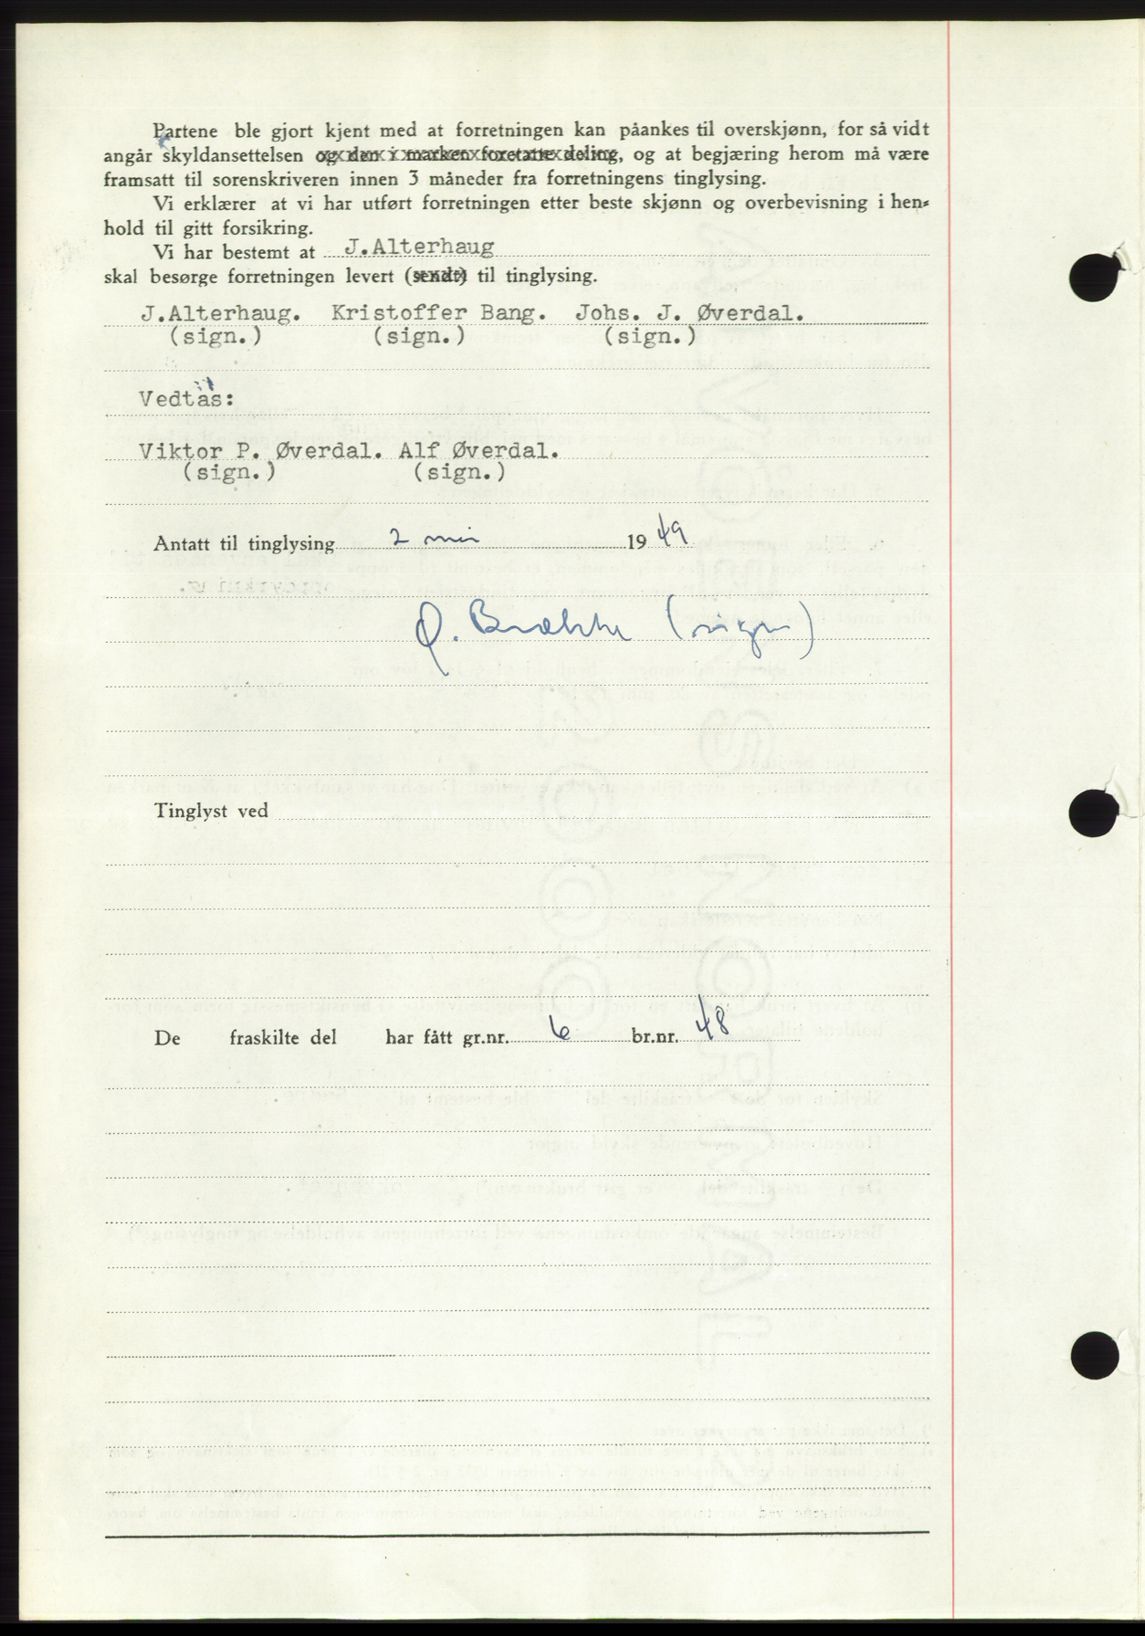 Partene ble gjort kjent med at forretningen kan påankes til overskjønn, for så vidt
angår skyldansettelsen og den i marken foretatte deling, og at begjæring herom må være
framsatt til sorenskriveren innen 3 måneder fra forretningens tinglysing.
Vi erklærer at vi har utført forretningen etter beste skjønn og overbevisning i hen-
hold til gitt forsikring.
Vi har bestemt at J.Alterhaug
skal besørge forretningen levert (sendt) til tinglysing.
J.Alterhaug. Kristoffer Bang. Johs. J. Øverdal.
(sign.) (sign.) (sign.)
Vedtas:
Viktor P. Øverdal. Alf Øverdal.
(sign.) (sign.)
Antatt til tinglysing 2 1949
Q. Brække (sign)
Tinglyst ved
De fraskilte del har fått gr.nr. 6 br.nr. 48